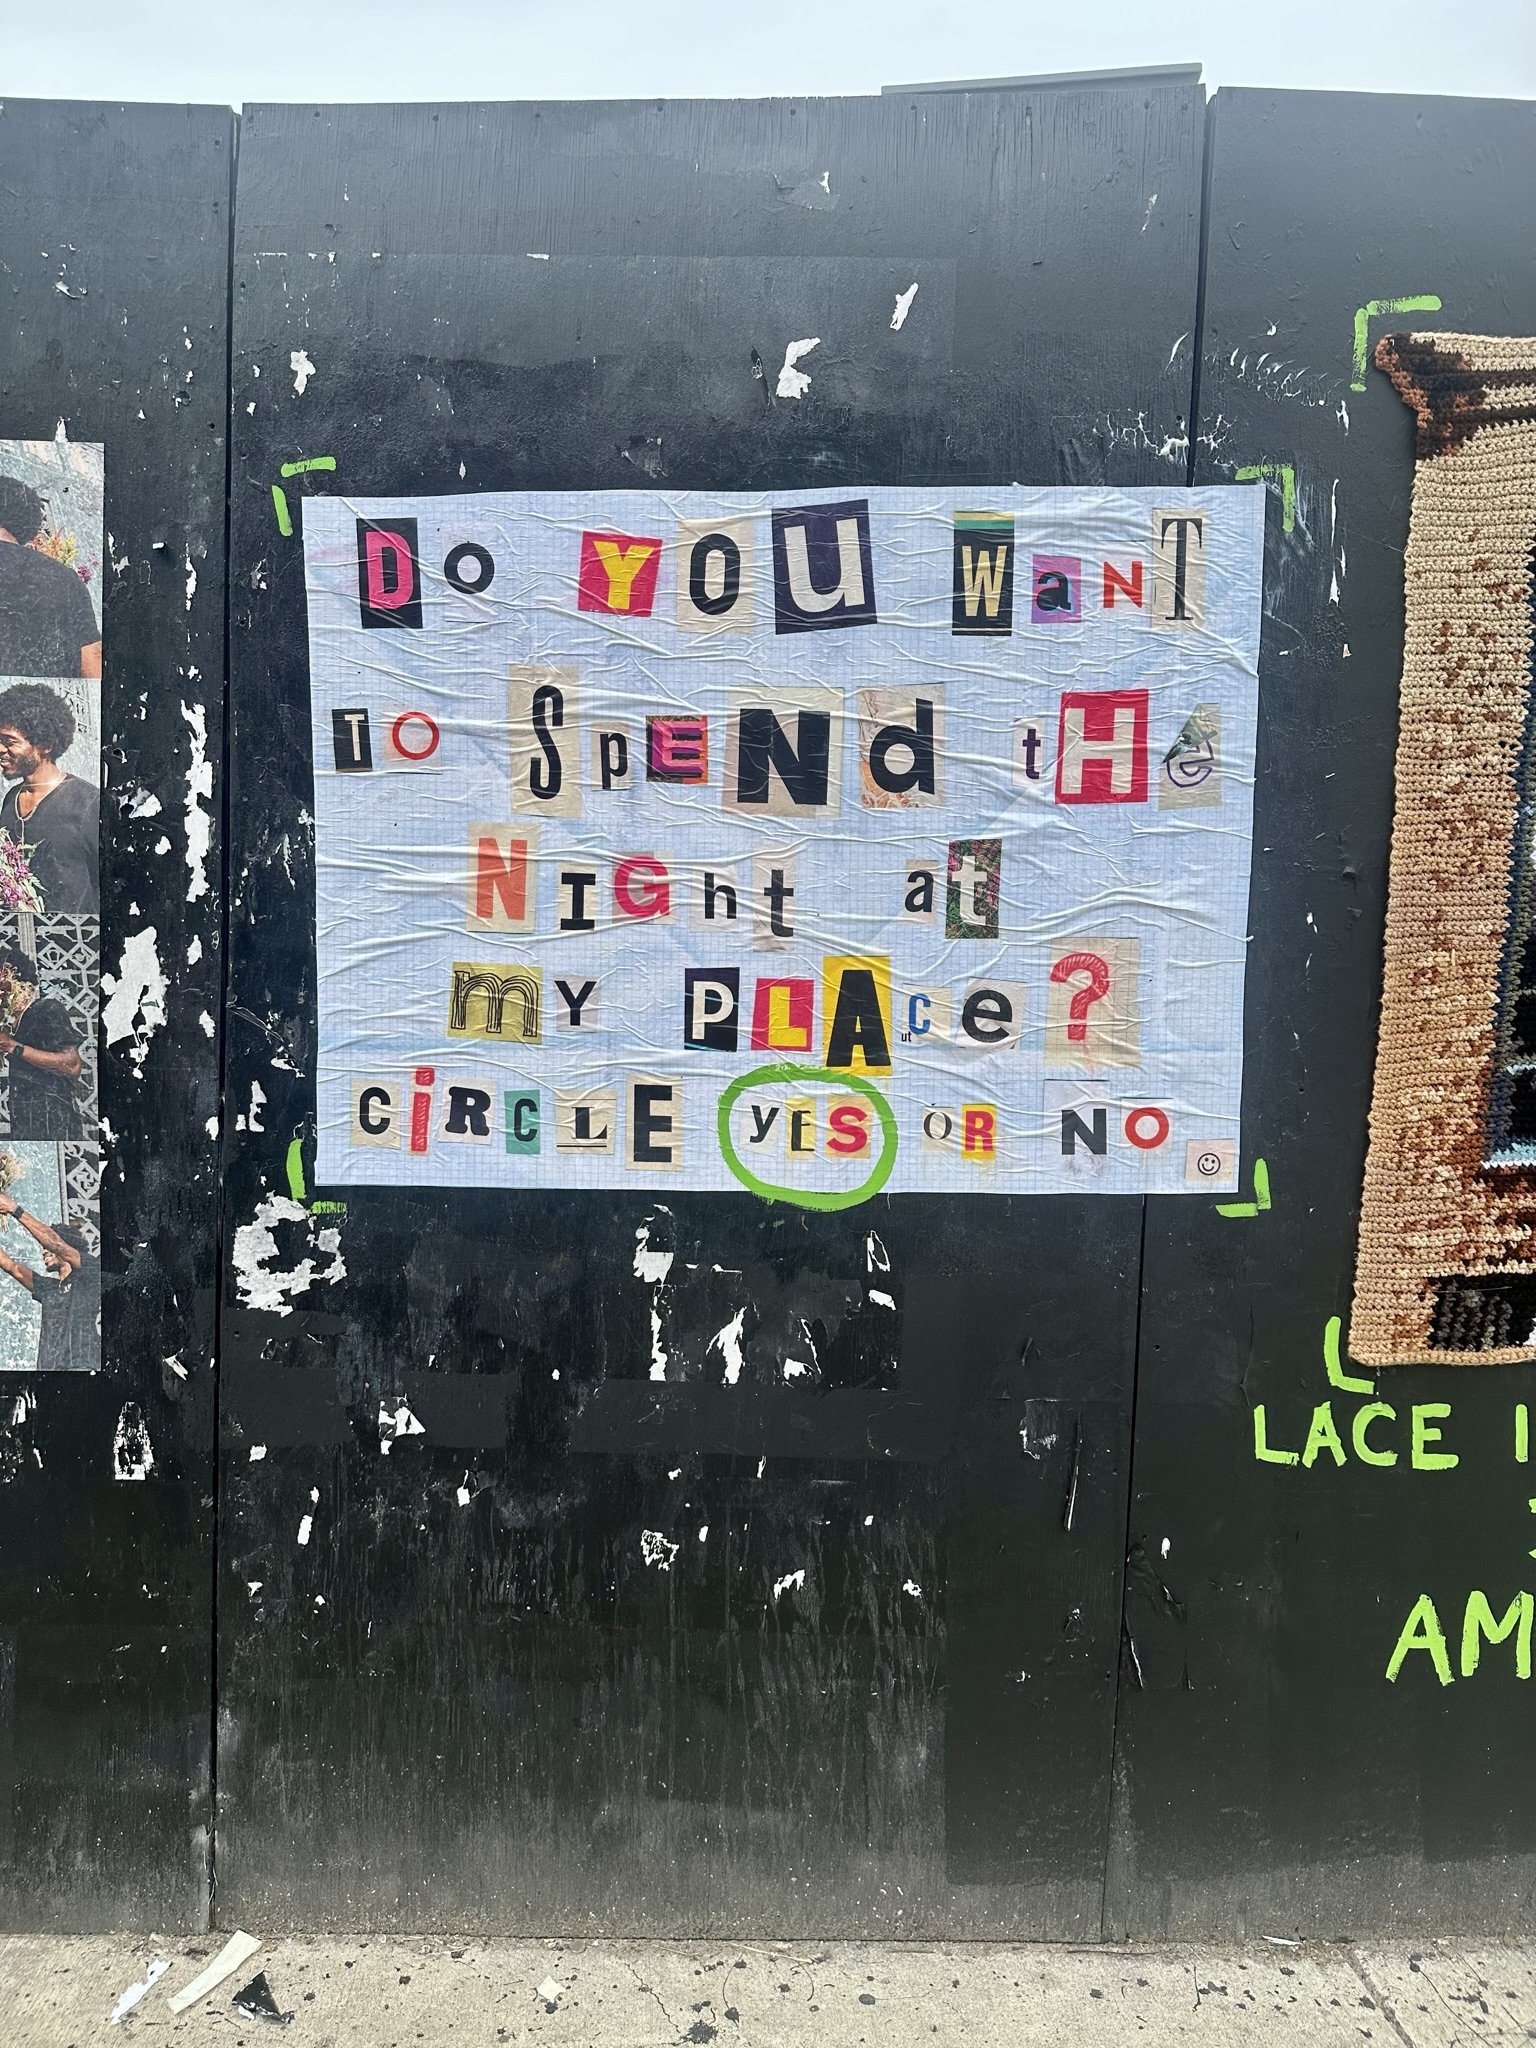 Do YOU WaNT
TO SpENd tHe
NIGht at
my PLACe?
CiRCLE yES OR NO
L
LACE I
AM